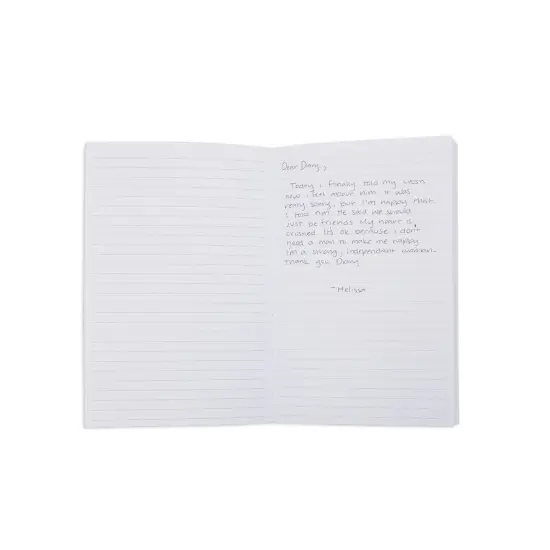 Dear Diary,
Today i finally told my crush
how i felt about him. It was
really scary, but i'm happy that
i told him. He said we should
just be friends. My heart is
crushed. It's ok because i don't
need a man to make me happy
i'm a strong, independant woman.
Thank you Diary
~Melissa